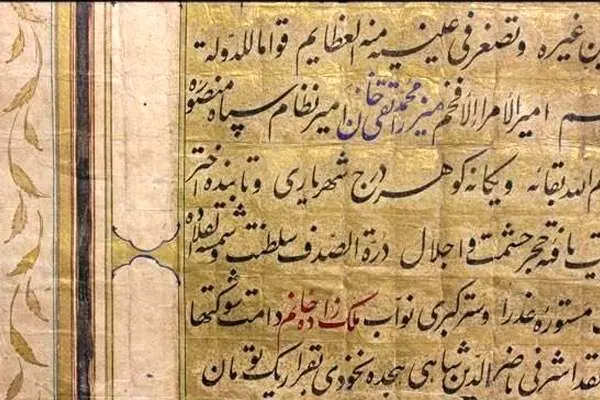 غیره و تصغر فی عینیه منه العظایم قواما للدولة
امیر الامراء الافخم میرزا محمد تقی خان امیر نظام سپاه منصوره
الله بقائه و یکانه کوهر درج شهریاری و تابنده اختر
یافته حجر حشمت و اجلال درة الصدف سلطنت و شمسة القلاده
مستوره عذرا و ستر کبری نواب ملک زاده خانم دامت شوکتها
نقد اشرفی ناصر الدین شاهی هجده نخودی بقرار یک تومان